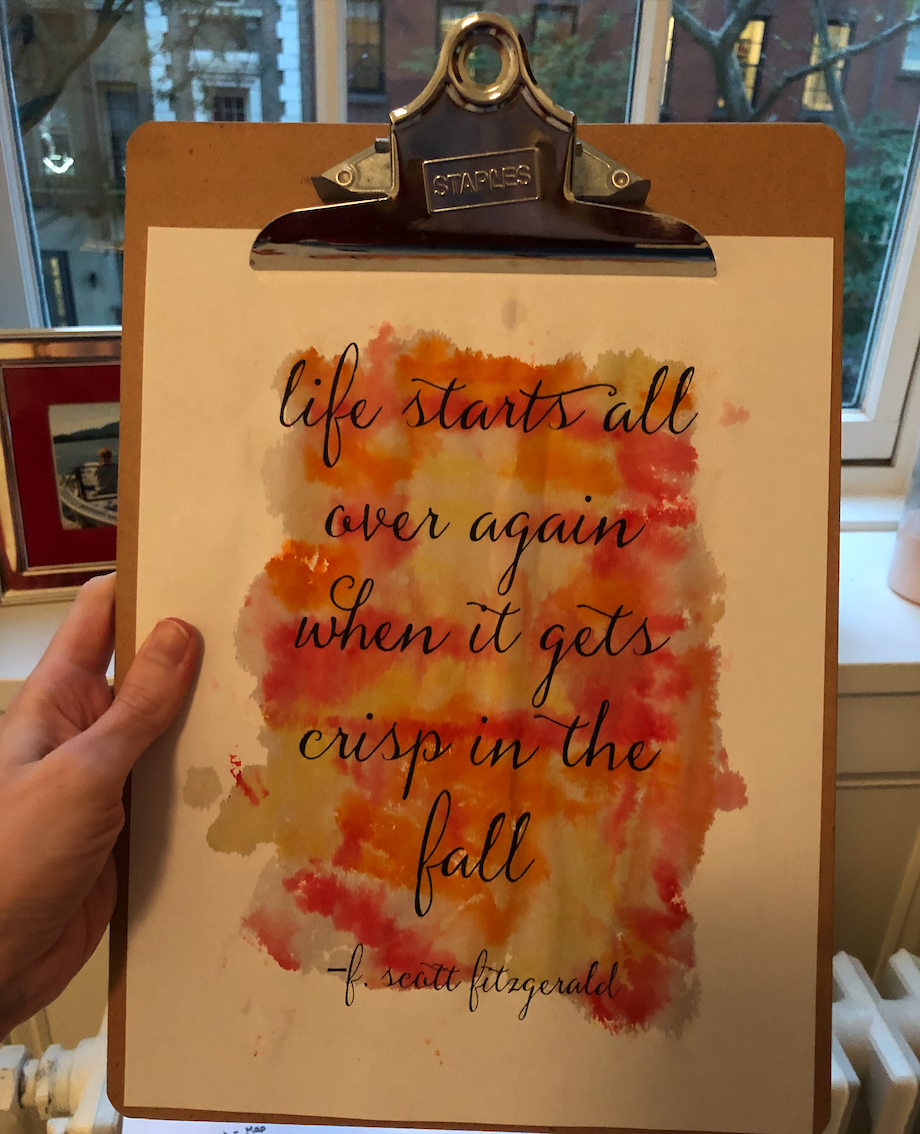 STAPLES
life starts all
over again
when it gets
crisp in the
fall
-f. scott fitzgerald
Map